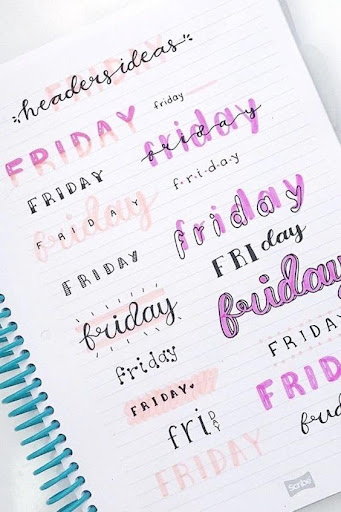 FRIDAY
headers ideas
FRIDAY
friday
friday
friday
FRIDAY
f·r·i·d·a·y
friday
FRIDAY
friday
FRIDAY
FRIday
friday
friday
friday
FRIDAY
FRIDAY♥
FRIDAY
friDAY
friday
FRIDAY
Scribe